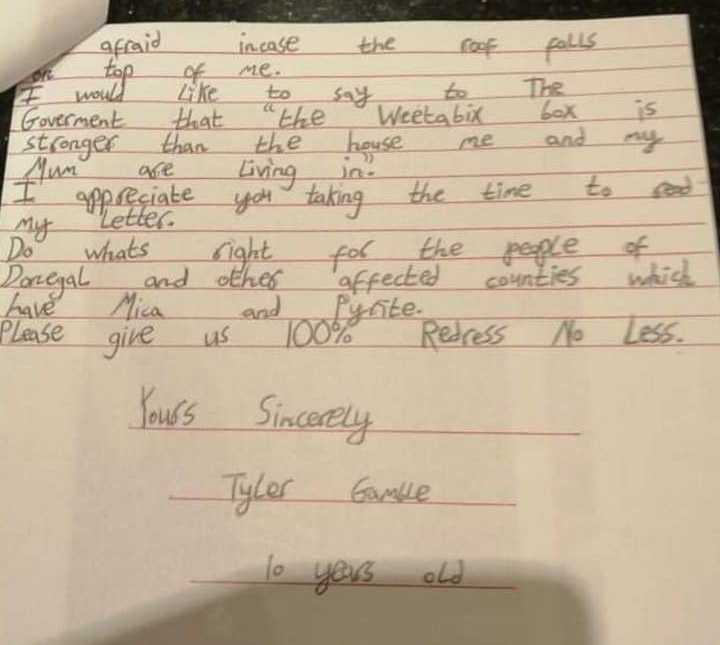 afraid incase the roof falls
on top of me.
I would Like to say to The
Goverment that "the Weetabix box is
stronger than the house me and my
Mum are Living in."
I appreciate you taking the time to read
my Letter.
Do whats right for the people of
Donegal and other affected counties which
have Mica and Pyrite.
Please give us 100% Redress No Less.
Yours Sincerely
Tyler Gamble
10 years old